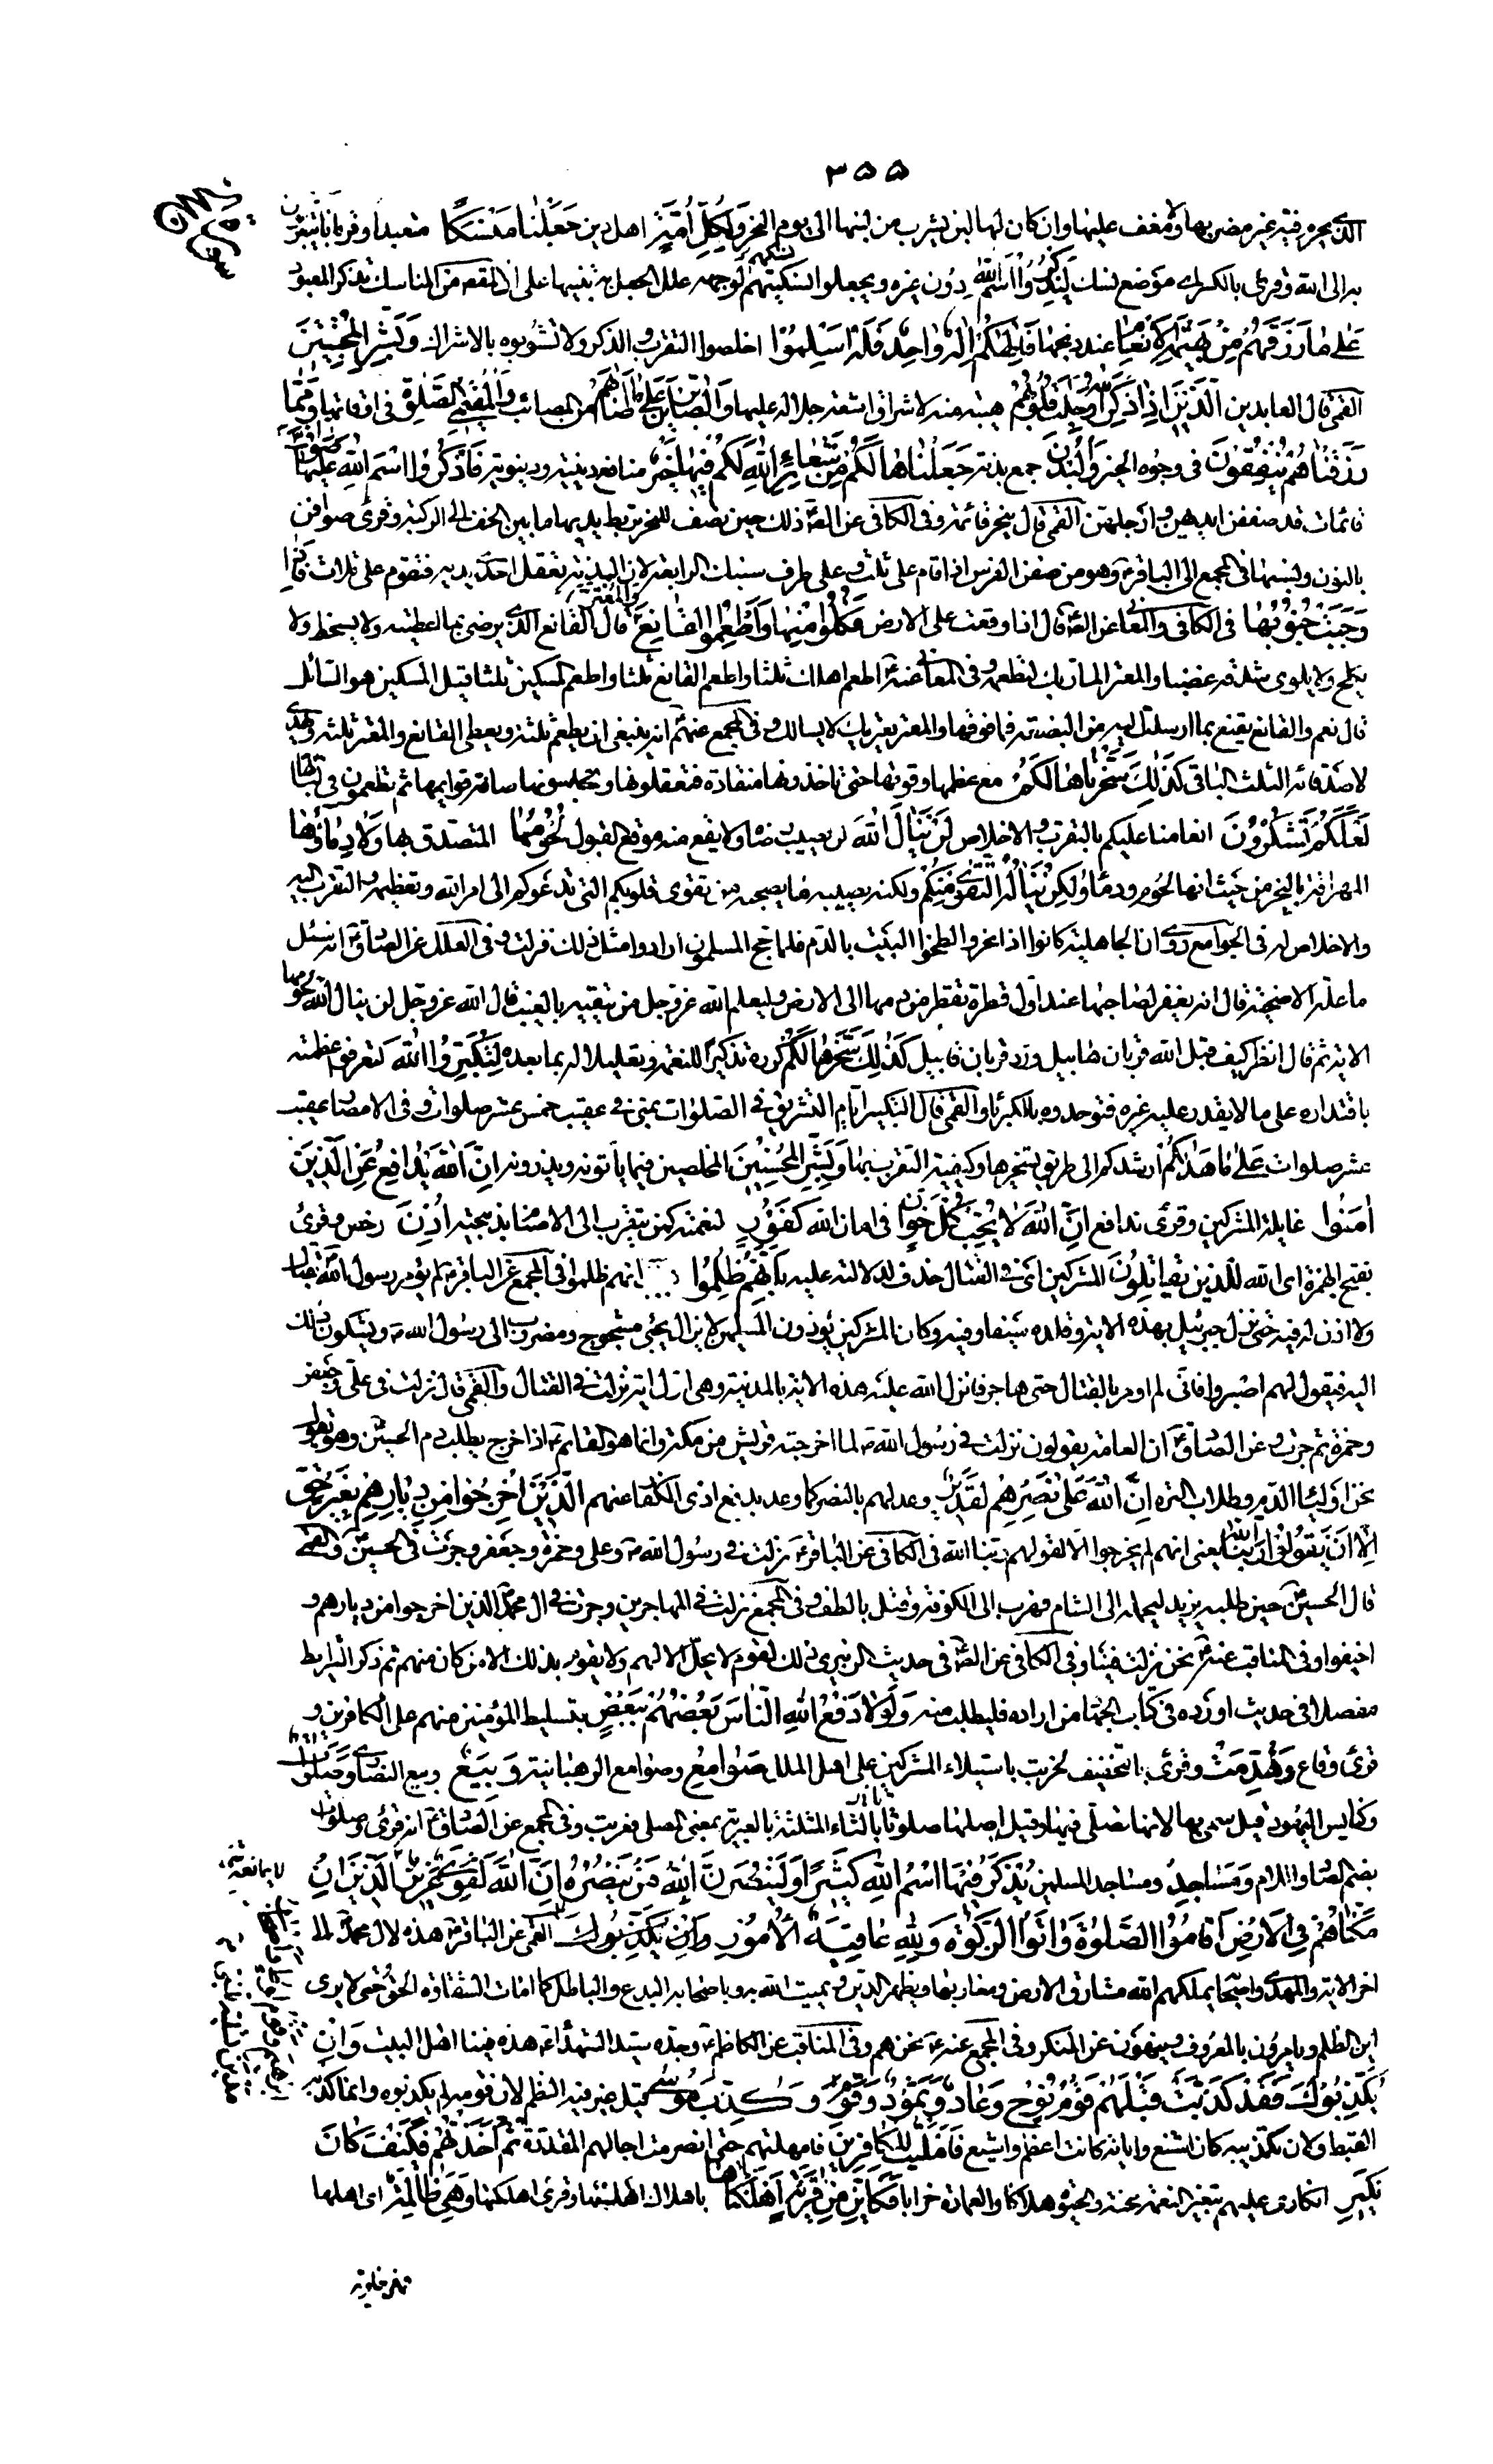 ٣٥٥
الذي يجره فيه غير مضر بها ولا معنف عليها وان كان لها لبن يشرب من لبنها الى يوم النحر وَلِكُلِّ اُمَّةٍ اهل دين جَعَلْنا مَنْسَكًا متعبدا وقربانا يتقربون
به الى الله وقرئ بالكسر اى موضع نسك لِيَذْكُرُوا اسْمَ اللهِ دون غيره ويجعلوا نسيكتهم لوجهه علل الجعل به تنبيها على ان المقصود من المناسك تذكر المعبود
عَلى ما رَزَقَهُمْ مِنْ بَهيمَةِ الاَنْعامِ عند ذبحها فَاِلهُكُمْ اِلهٌ واحِدٌ فَلَهُ اَسْلِمُوا اخلصوا التقرب والذكر ولا تشوبوه بالاشراك وَبَشِّرِ الْمُخْبِتينَ
القمى قال العابدين اَلَّذينَ اِذا ذُكِرَ اللهُ وَجِلَتْ قُلُوبُهُمْ هيبة منه لاشراق اشعة جلاله عليها وَالصّابِرينَ عَلى ما اَصابَهُمْ من المصائب وَالْمُقيمِي الصَّلوةِ فى اوقاتها وَمِمّا
رَزَقْناهُمْ يُنْفِقُونَ فى وجوه الخير وَالْبُدْنَ جمع بدنة جَعَلْناها لَكُمْ مِنْ شَعائِرِ اللهِ لَكُمْ فيها خَيْرٌ منافع دينية ودنيوية فَاذْكُرُوا اسْمَ اللهِ عَلَيْها صَوافَّ
قائمات قد صففن ايديهن وارجلهن القمى قال ينحر قائمة وفى الكافى عن الصّ ذلك حين تصف للنحر تربط يديها ما بين الخف الى الركبة وقرئ صوافن
بالنون ونسبها فى المجمع الى الباقر ع وهو من صفن الفرس اذا قام على ثلث وعلى طرف سنبك الرابعة لان البدنة تعقل احدى يديها فتقوم على ثلاث فَاِذا
وَجَبَتْ جُنُوبُها فى الكافى والمعانى عن الصّ قال اذا وقعت على الارض فَكُلُوا مِنْها وَاَطْعِمُوا الْقانِعَ وَالْمُعْتَرَّ قال القانع الذى يرضى بما اعطيته ولا يسخط ولا
يكلح ولا يلوى شدقه غضبا والمعتر المار بك لتطعمه وفى المعانى عنه ع اطعم اهلك ثلثا واطعم القانع ثلثا واطعم المسكين ثلثا قيل المسكين هو السائل
قال نعم والقانع يقنع بما ارسلت اليه من البضعة فما فوقها والمعتر يعتريك لا يسألك وفى المجمع عنهم انه ينبغى ان يطعم ثلثه ويعطى القانع والمعتر ثلثه ويهدى
لاصدقائه الثلث الباقى كَذلِكَ سَخَّرْناها لَكُمْ مع عظمها وقوتها حتى تأخذوها منقادة فتعقلوها وتحبسونها صافة قوائمها ثم تطعنون فى لباتها
لَعَلَّكُمْ تَشْكُرُونَ انعامنا عليكم بالتقرب والاخلاص لَنْ يَنالَ اللهَ لن يصيب رضاه ولا يقع منه موقع القبول لُحُومُها المتصدق بها وَلا دِماؤُها
المهراقة بالنحر من حيث انها لحوم ودماء وَلكِنْ يَنالُهُ التَّقْوى مِنْكُمْ ولكنه يصيبه ما يصحبه من تقوى قلوبكم التى تدعوكم الى امر الله وتعظيمه والتقرب اليه
والاخلاص له فى الجوامع روى ان الجاهلية كانوا اذا نحروا لطخوا البيت بالدم فلما حج المسلمون ارادوا مثل ذلك فنزلت وفى العلل عن الصادق ع انه سئل
ما علة الاضحية قال انه يغفر لصاحبها عند اول قطرة تقطر من دمها الى الارض وليعلم الله عز وجل من يتقيه بالغيب قال الله عز وجل لن ينال الله لحومها
الاية ثم قال انظر كيف قبل الله قربان هابيل ورد قربان قابيل كَذلِكَ سَخَّرَها لَكُمْ كرره تذكيرا للنعمة وتعليلا له بما بعده لِتُكَبِّرُوا اللهَ لتعرفوا عظمته
باقتداره على ما لا يقدر عليه غيره فتوحدوه بالكبرياء والقمى قال التكبير ايام التشريق فى الصلوات بمنى فى عقيب خمس عشر صلوات وفى الامصار عقيب
عشر صلوات عَلى ما هَداكُمْ ارشدكم الى طريق تسخيرها وكيفية التقرب بها وَبَشِّرِ الْمُحْسِنينَ المخلصين فيما يأتونه ويذرونه اِنَّ اللهَ يُدافِعُ عَنِ الَّذينَ
امَنُوا غايلة المشركين وقرئ يدفع اِنَّ اللهَ لا يُحِبُّ كُلَّ خَوّانٍ فى امانة الله كَفُورٍ لنعمته كمن يتقرب الى الاصنام بذبيحته اُذِنَ رخص وقرئ
بفتح الهمزة اى الله لِلَّذينَ يُقاتَلُونَ المشركين اى فى القتال حذف لدلالته عليه بِاَنَّهُمْ ظُلِمُوا بسبب انهم ظلموا فى المجمع عن الباقر ع لم يؤمر رسول الله ص بقتال
ولا اذن له فيه حتى نزل جبرئيل بهذه الاية وقلده سيفا وفيه وكان المشركون يؤذون المسلمين لا يزال يجئ مشجوج ومضروب الى رسول الله ص ويشكون ذلك
اليه فيقول لهم اصبروا فانى لم اومر بالقتال حتى هاجر فانزل الله عليه هذه الاية بالمدينة وهى اول اية نزلت فى القتال والقمى قال نزلت فى على وجعفر
وحمزة ثم جرت وعن الصادق ع ان العامة يقولون نزلت فى رسول الله ص لما اخرجته قريش من مكة وانما هو القائم ع اذا خرج يطلب بدم الحسين ع وهو يقول
نحن اولياء الدم وطلاب الترة اِنَّ اللهَ عَلى نَصْرِهِمْ لَقَديرٌ وعد لهم بالنصر كما وعد بدفع اذى الكفار عنهم اَلَّذينَ اُخْرِجُوا مِنْ دِيارِهِمْ بِغَيْرِ حَقٍّ
اِلّا اَنْ يَقُولُوا رَبُّنَا اللهُ يعنى انهم لم يخرجوا الا لقولهم ربنا الله فى الكافى عن الباقر ع نزلت فى رسول الله ص وعلى وحمزة وجعفر وجرت فى الحسين ع والقمى
قال الحسين ع حين طلبه يزيد ليحمله الى الشام فهرب الى الكوفة وقتل بالطف وفى المجمع نزلت فى المهاجرين وجرت فى ال محمد الذين اخرجوا من ديارهم و
اخيفوا وفى المناقب عنه ع نحن نزلت فينا وفى الكافى عن الصّ فى حديث الزبيرى ذلك لقوم لا يحل الا لهم ولا يقوم بذلك الا من كان منهم ثم ذكر الشرائط
مفصلا فى حديث اورده فى كتاب الجهاد من اراده فليطلب منه وَلَوْلا دَفْعُ اللهِ النّاسَ بَعْضَهُمْ بِبَعْضٍ بتسليط المؤمنين منهم على الكافرين و
قرئ دفاع لَهُدِّمَتْ وقرئ بالتخفيف لخربت باستيلاء المشركين على اهل الملل صَوامِعُ وصوامع الرهبانية وَبِيَعٌ وبيع النصارى وَصَلَواتٌ
وكنايس اليهود قيل سمى بها لانها يصلى فيها وقيل اصلها صلوثا بالثاء المثلثة بالعبرية بمعنى المصلى فعربت وفى المجمع عن الصادق ع انه قرئ وصلوات
بضم الصاد واللام وَمَساجِدُ ومساجد المسلمين يُذْكَرُ فيهَا اسْمُ اللهِ كَثيرًا وَلَيَنْصُرَنَّ اللهُ مَنْ يَنْصُرُهُ اِنَّ اللهَ لَقَوِيٌّ عَزيزٌ اَلَّذينَ اِنْ
مَكَّنّاهُمْ فِي الاَرْضِ اَقامُوا الصَّلوةَ وَاتَوُا الزَّكوةَ وَلِلّهِ عاقِبَةُ الاُمُورِ وَاِنْ يُكَذِّبُوكَ القمى عن الباقر ع هذه لال محمد الى
اخر الاية والمهدى واصحابه يملكهم الله مشارق الارض ومغاربها ويظهر الدين ويميت الله به وباصحابه البدع والباطل كما امات السفهاء الحق حتى لا يرى
اين الظلم ويامرون بالمعروف وينهون عن المنكر وفى المجمع عنه ع نحن هم وفى المناقب عن الكاظم ع وجده سيد الشهداء ع هذه فينا اهل البيت وَاِنْ
يُكَذِّبُوكَ فَقَدْ كَذَّبَتْ قَبْلَهُمْ قَوْمُ نُوحٍ وَعادٌ وَثَمُودُ وَقَوْمُ وَكُذِّبَ مُوسى قيل غير فيه النظم لان قومه لم يكذبوه وانما كذبه
القبط ولان تكذيبه كان اشنع واياته كانت اعظم واشيع فَاَمْلَيْتُ لِلْكافِرينَ فامهلتهم حتى انصرمت اجالهم المقدرة ثُمَّ اَخَذْتُهُمْ فَكَيْفَ كانَ
نَكيرِ انكارى عليهم بتغيير النعمة محنة والحيوة هلاكا والعمارة خرابا فَكَاَيِّنْ مِنْ قَرْيَةٍ اَهْلَكْناها باهلاك اهلها وقرئ اهلكتها وَهِيَ ظالِمَةٌ اى اهلها
فهى خاوية